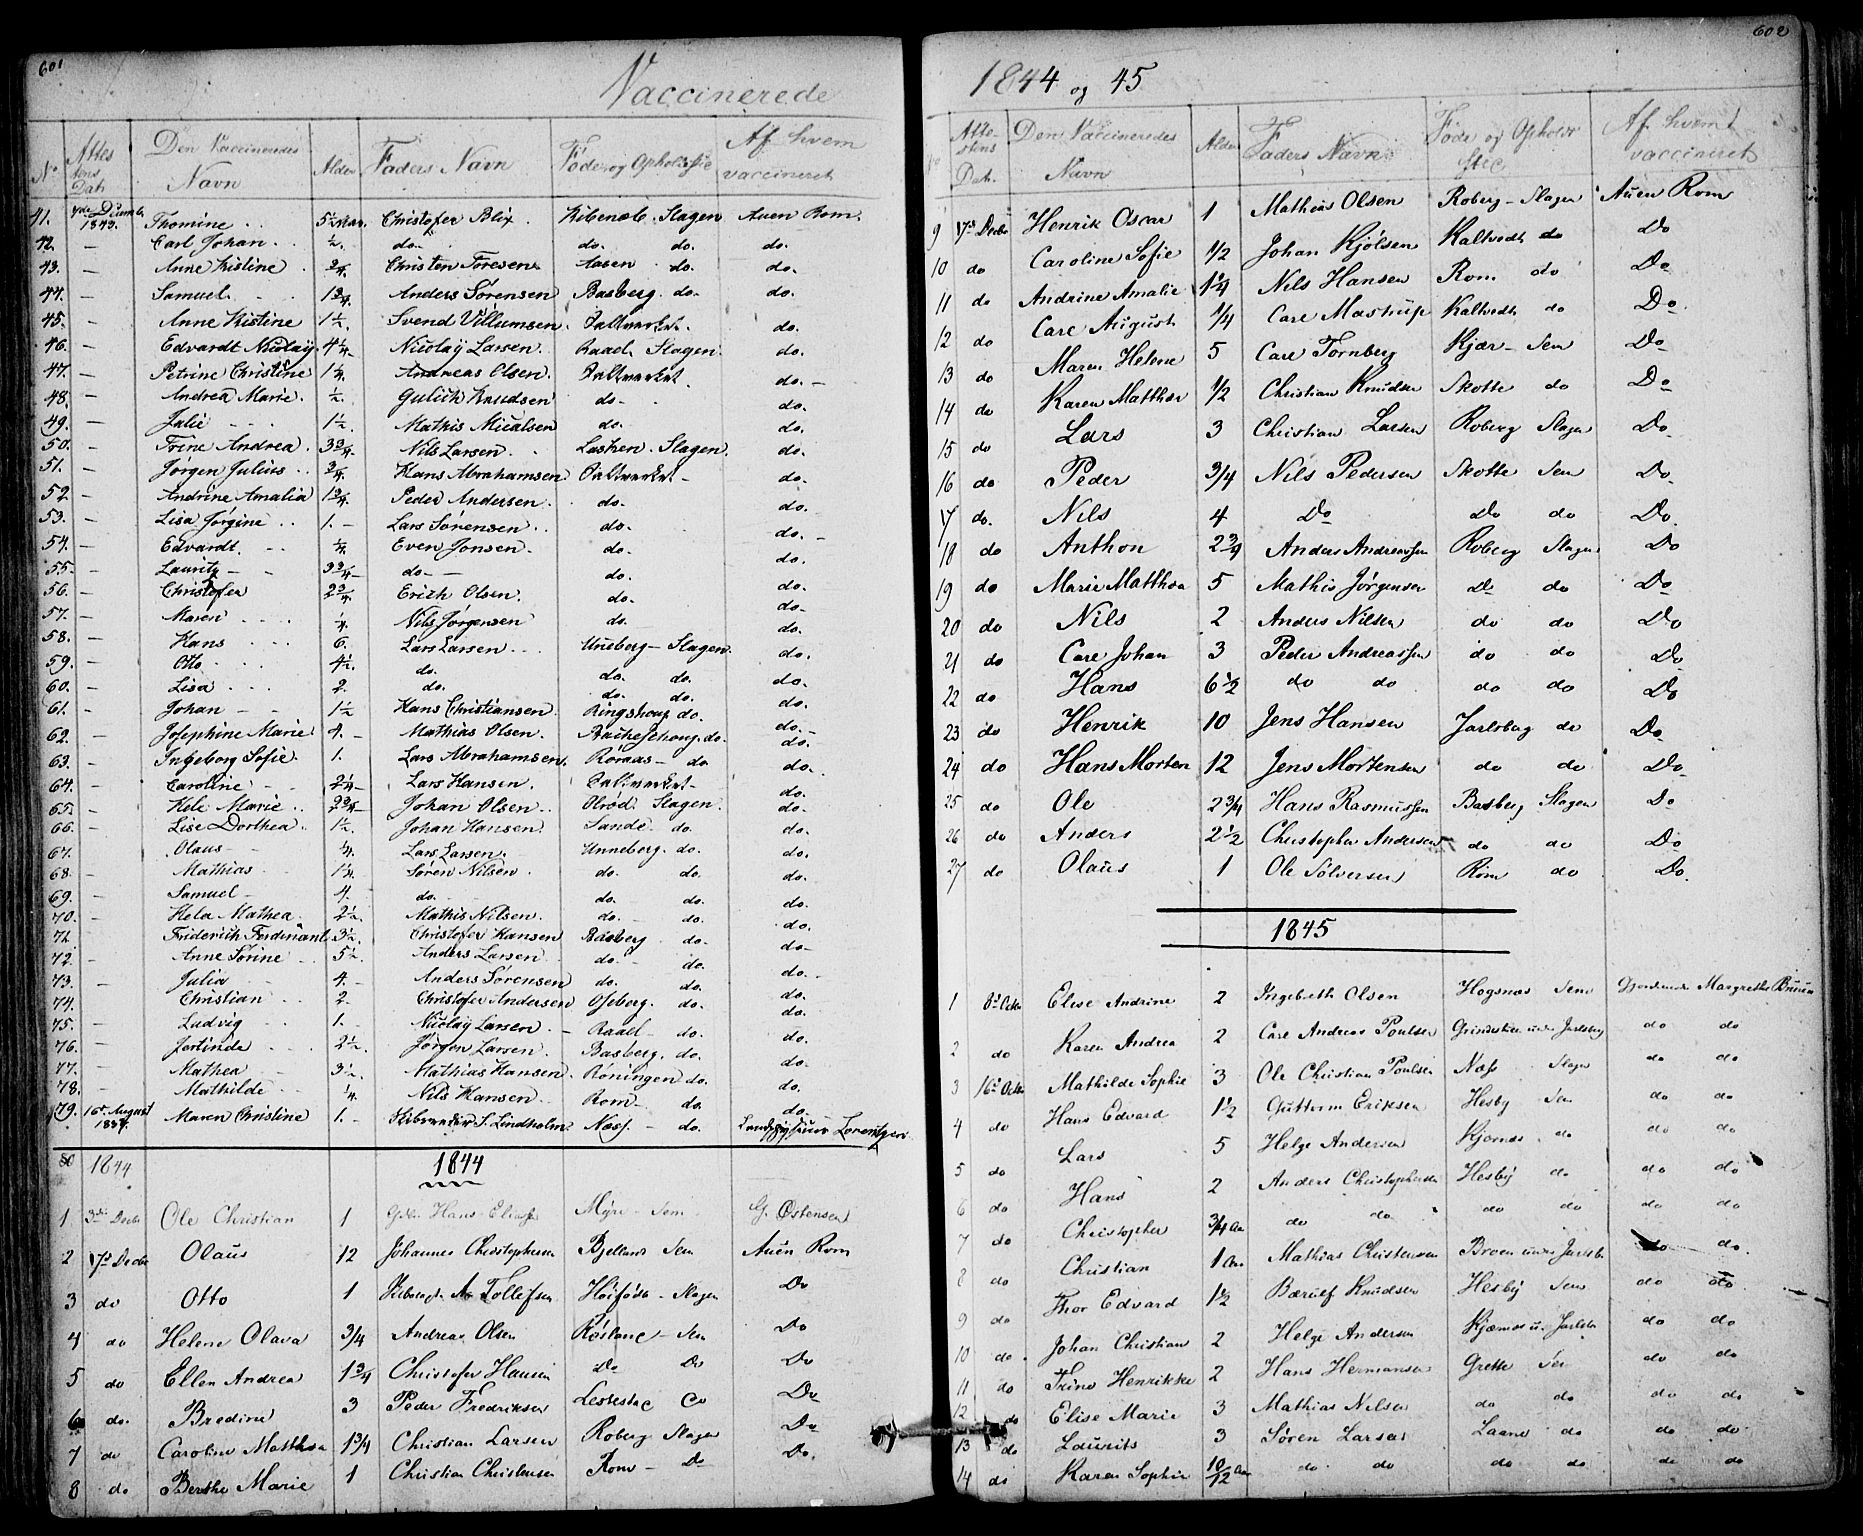 601
Vaccinerede
No Attestens Dat. Den Vaccineredes Navn Alder Faders Navn Føde og Opholdsstie Af hvem vaccineret
41. 4de Decemb. 1843. Thomine 5 Christofer Blix Slagen Auen Rom.
42. — Carl Johan ½. do. do. do. do.
43. — Anne Kristine ¾. Christen Toresen Aasen do. do.
44. — Samuel 1¾. Anders Sørensen Basberg. do. do.
45. — Anne Kistine 1½. Svend Villumsen. Saltverket. do.
46. — Edvardt Nicolaÿ. 4¼. Nicolaÿ Larsen. Raael. Slagen. do.
47. — Petrine Christine 1¼. Andreas Olsen. Saltverket. do.
48. — Andrea Marie. ½. Gulich Knudsen do. do.
49. — Julie 1½. Mathis Micalsen do. do.
50. — Trine Andrea. 3¾. Nils Larsen. Slagen. do.
51. — Jørgen Julius ¾. Hans Abrahamsen Saltverket. do.
52. — Andrine Amalia 1¾. Peder Andersen. do. do.
53. — Lisa Jørgine 1. Lars Sørensen do. do.
54. — Edvardt. ¼. Even Jonsen. do. do.
55. — Lauritz 3¾. do. do. do.
56. — Christofer 2¾. Erich Olsen. do. do.
57. — Maren ¼. Nils Jørgensen do. do.
58. — Hans 6. Lars Larsen Uneberg — Slagen. do.
59. — Otto 4½. do. do. do. do.
60. — Lisa 2. do. do. do. do.
61. — Johan 1½ Hans Christiansen. Ringshoug do. do.
62. — Josephine Marie 4. Mathias Olsen. do. do.
63. — Ingeborg Sofie. 1. Lars Abrahamsen. Røraas — do do.
64. — Caroline 2¼. Lars Hansen. Saltverket. do.
65. — Hele Marie 2¾. Johan Olsen. Olrød. Slagen. do.
66. — Lise Dorthea. 1½. Johan Hansen. Sande. do. do.
67. — Olaus ¼. Lars Larsen. Unneberg. do. do.
68. — Mathias 1¼. Søren Nilsen. do. do. do.
69. — Samuel 4. do. do. do. do.
70. — Hela Mathea. 2½. Mathis Nilsen. do. do. do.
71. — Friderich Ferdinant. 3½. Christofer Hansen Basberg do. do.
72. — Anne Sørine 5½. Anders Larsen. do. do. do.
73. — Julia 4. Anders Sørensen do. do. do.
74. — Christian 2. Christofer Andersen do. do.
75. — Ludvig 1. Nicolaÿ Larsen. Raael — do. do.
76. — Jortinde 2½. Jørgen Larsen. Basberg. do. do.
77. — Mathea 3½. Mathias Hansen. Røningen do. do.
78. — Mathilde ¼. Nils Hansen. Rom — do. do.
79. 16de August 1834. Maren Christine 1. S. Lindholm. Næs. — do. Lorentzen
80 1844
1844
1 3die Decbr Ole Christian 1 Hans Elias Mÿre — Sem G. Østensen
2 17d Decbr Olaus 12 Johannes Christophersen Bjelland Sem Auen Rom
3 do Otto 1 Tollefsen — Slagen Do
4 do Helene Olava 3/4 Andreas Olsen — Sem Do
5 do Ellen Andrea 1¾ Christofer Hansen Do Do Do
6 do. Bredine 3 Peder Fredriksen Do
7 do Caroline Matthea 1¾ Christian Larsen Roberg Slagen Do
8 do Berthe Marie 1 Christian Christensen Rom — Do Do.
602
1844 og 45
No Attestens Dat. Den Vaccineredes Navn Alder Faders Navn Føde og Opholds Stie Af hvem vaccineret
9 17d Decbr Henrik Oscar 1 Mathias Olsen Roberg — Slagen Auen Rom
10 do Caroline Sofie 1/2 Johan Kjølsen Kaltvedt do Do
11 do Andrine Amalie 1¼ Nils Hansen Rom do Do
12 do Carl August 1/4 Carl Mastrup Kaltvedt do Do
13 do Maren Helene 5 Carl Tornberg Kjær — Sem Do
14 do Karen Matthea 1/2 Christian Knudsen Skotte do Do
15 do Lars 3 Christian Larsen Roberg Slagen Do
16 do Peder 3/4 Nils Pedersen Skotte Sem Do.
17 do. Nils 4 Do Do do Do.
18 do Anthon 2¾ Anders Andreassen Roberg Slagen Do
19 do Marie Matthea 5 Mathis Jørgensen Do do Do
20 do Nils 2 Anders Nilsen do do Do
21 do Carl Johan 3 Peder Andreassen do do Do
22 do Hans 6½ do do do do Do
23 do Henrik 10 Jens Hansen Jarlsberg do Do
24 do Hans Morten 12 Jens Mortensen do do Do
25 do Ole 2 3/4 Hans Rasmussen Basberg Slagen Do
26 do Anders 2½ Christopher Andersen do do Do
27 do Olaus 1 Ole Sølversen Rom do Do.
1845
1 8d Octbr Elise Andrine 2 Ingebreth Olsen Hogsnæs Sem Margrethe Bruun
2 do Karen Andrea 2 Carl Andreas Poulsen under Jarlsberg do do
3 16d Octbr Mathilde Sophie 3 Ole Christian Poulsen Næss Slagen do do
4 do Hans Edvard 1½ Guttorm Eriksen Hesby Sem do do
5 do Lars 5 Helge Andersen Kjærnæs do do do
6 do Hans 2 Anders Christophersen Hesbÿ do do do
7 do Christopher 3/4 Aar do do do do do do
8 do Christian 1 Aar Mathias Christensen Broen under Jarlsb. do do.
9 do Thor Edvard 1½ Knudsen Hesbÿ Sem do do
10 do. Johan Christian 2 Helge Andersen Kjærnæs u. Jarlsb. do do
11 do Trine Henrikke 2 Hans Hermansen Grette Sem do do
12 do Elise Marie 3 Mathias Nilsen do do do do
13 do Lauritz 3 Søren Larsen do do do
14 do Karen Sophie 10/12 Aar do do do do do do